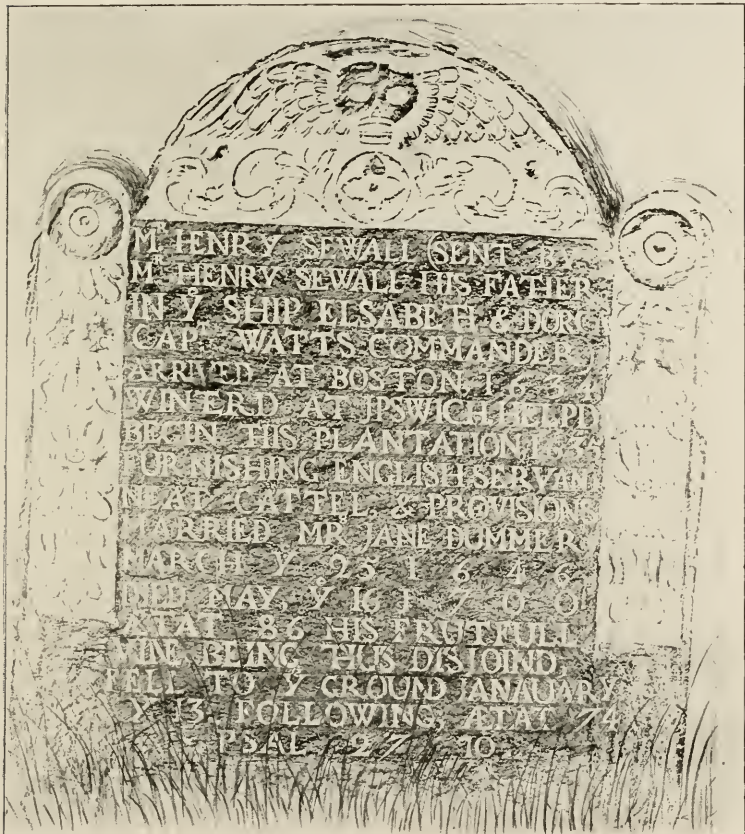 Mʳ HENRY SEWALL (SENT BY
Mʳ HENRY SEWALL HIS FATHER
IN Yᵉ SHIP ELSABETH & DORC
CAPᵗ WATTS COMMANDER
ARRIVED AT BOSTON 1634
WINTERD AT IPSWICH HELPD
BEGIN THIS PLANTATION 1635
FURNISHING ENGLISH SERVAN
NEAT CATTEL, & PROVISIONS
MARRIED Mʳˢ JANE DUMMER
MARCH Yᵉ 25 1646
DIED MAY, Yᵉ 16 1700
ÆTAT 86 HIS FRUTFULL
VINE BEING THUS DISJOIND,
FELL TO Yᵉ GROUND JANAUARY
Yᵉ 13 FOLLOWING, ÆTAT 74
PSAL 27 10